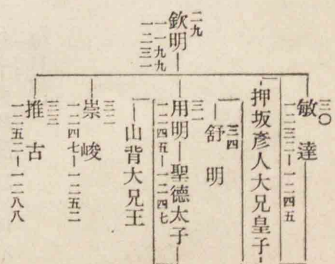 二九
欽明
一一九九—一二三一
三〇
敏達
一二三二—一二四五
押坂彥人大兄皇子
三四
舒明
三一
用明—聖德太子
一二四五—一二四七
山背大兄王
三二
崇峻
一二四七—一二五二
三三
推古
一二五二—一二八八